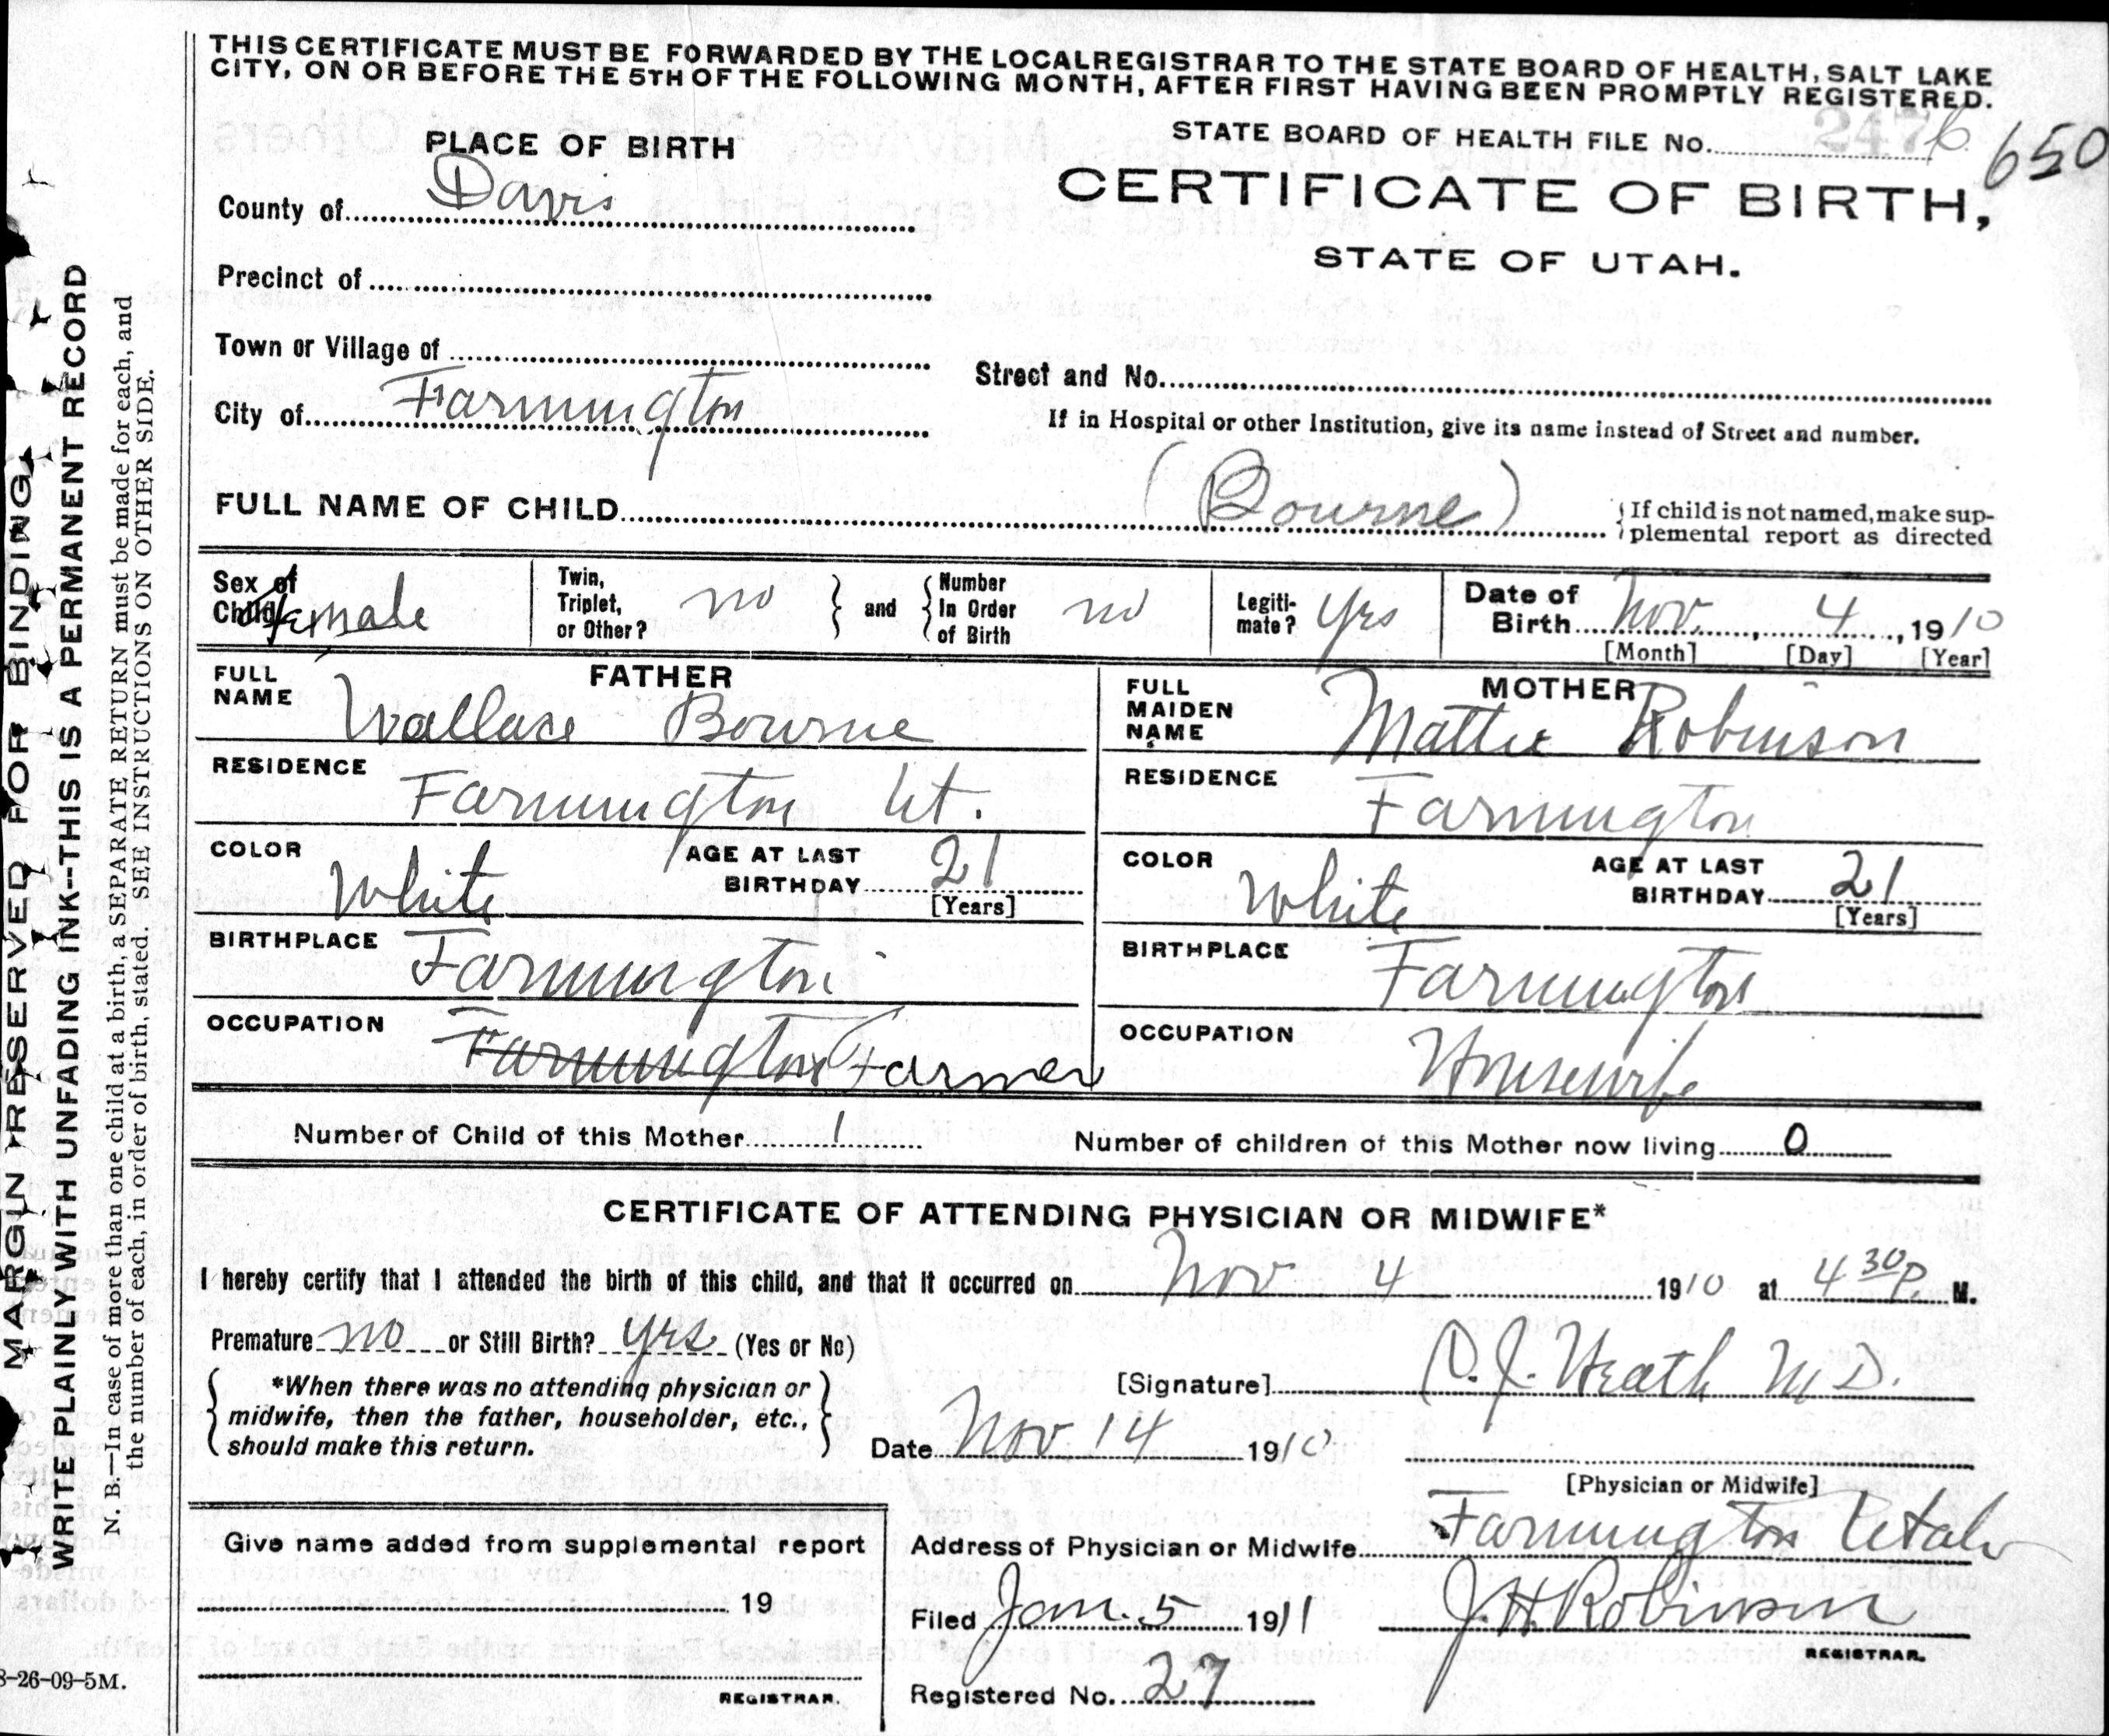 THIS CERTIFICATE MUST BE FORWARDED BY THE LOCAL REGISTRAR TO THE STATE BOARD OF HEALTH, SALT LAKE
CITY, ON OR BEFORE THE 5TH OF THE FOLLOWING MONTH, AFTER FIRST HAVING BEEN PROMPTLY REGISTERED.
PLACE OF BIRTH
County of Davis
Precinct of
Town or Village of
City of Farmington
STATE BOARD OF HEALTH FILE No. 2476 650
CERTIFICATE OF BIRTH,
STATE OF UTAH.
Street and No.
If in Hospital or other Institution, give its name instead of Street and number.
FULL NAME OF CHILD (Bourne)
If child is not named, make sup-
plemental report as directed
Sex of Child female
Twin, Triplet, or Other? no
and
Number In Order of Birth no
Legiti-mate? Yes
Date of Birth Nov. 4, 1910
[Month] [Day] [Year]
FATHER
FULL NAME Wallace Bourne
RESIDENCE Farmington Ut.
COLOR White
AGE AT LAST BIRTHDAY 21
[Years]
BIRTHPLACE Farmington
OCCUPATION Farmington Farmer
MOTHER
FULL MAIDEN NAME Mattie Robinson
RESIDENCE Farmington
COLOR White
AGE AT LAST BIRTHDAY 21
[Years]
BIRTHPLACE Farmington
OCCUPATION Housewife
Number of Child of this Mother 1
Number of children of this Mother now living 0
CERTIFICATE OF ATTENDING PHYSICIAN OR MIDWIFE*
I hereby certify that I attended the birth of this child, and that it occurred on Nov 4 1910 at 4 30 P. M.
Premature no or Still Birth? yes (Yes or No)
*When there was no attending physician or
midwife, then the father, householder, etc.,
should make this return.
[Signature] C. J. Heath M D.
Date Nov 14 1910
[Physician or Midwife]
Give name added from supplemental report
19
REGISTRAR.
Address of Physician or Midwife Farmington Utah
Filed Jan. 5 1911 J. H. Robinson
REGISTRAR.
Registered No. 27
MARGIN RESERVED FOR BINDING
WRITE PLAINLY WITH UNFADING INK--THIS IS A PERMANENT RECORD
N. B.—In case of more than one child at a birth, a SEPARATE RETURN must be made for each, and
the number of each, in order of birth, stated. SEE INSTRUCTIONS ON OTHER SIDE.
8-26-09-5M.